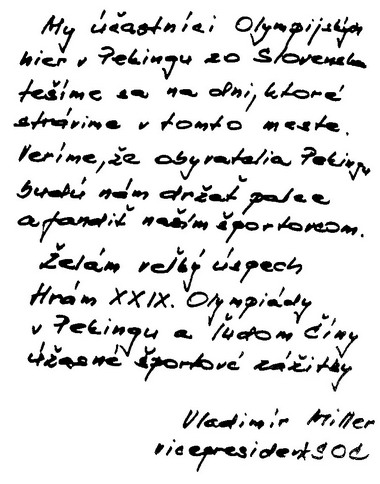 My účastníci Olympijských
hier v Pekingu zo Slovenska
tešíme sa na dni, ktoré
strávime v tomto meste.
Veríme, že obyvatelia Pekingu
budú nám držať palce
a fandiť naším športovcom.
Želám veľký úspech
Hrám XXIX. Olympiády
v Pekingu a ľuďom Číny
úžasné športové zážitky
Vladimír Miller
vicepresident SOC